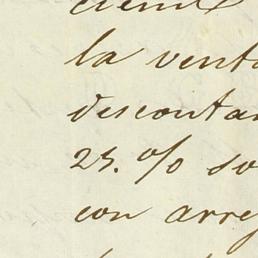 la venta
descontan
25.% so
con arreg